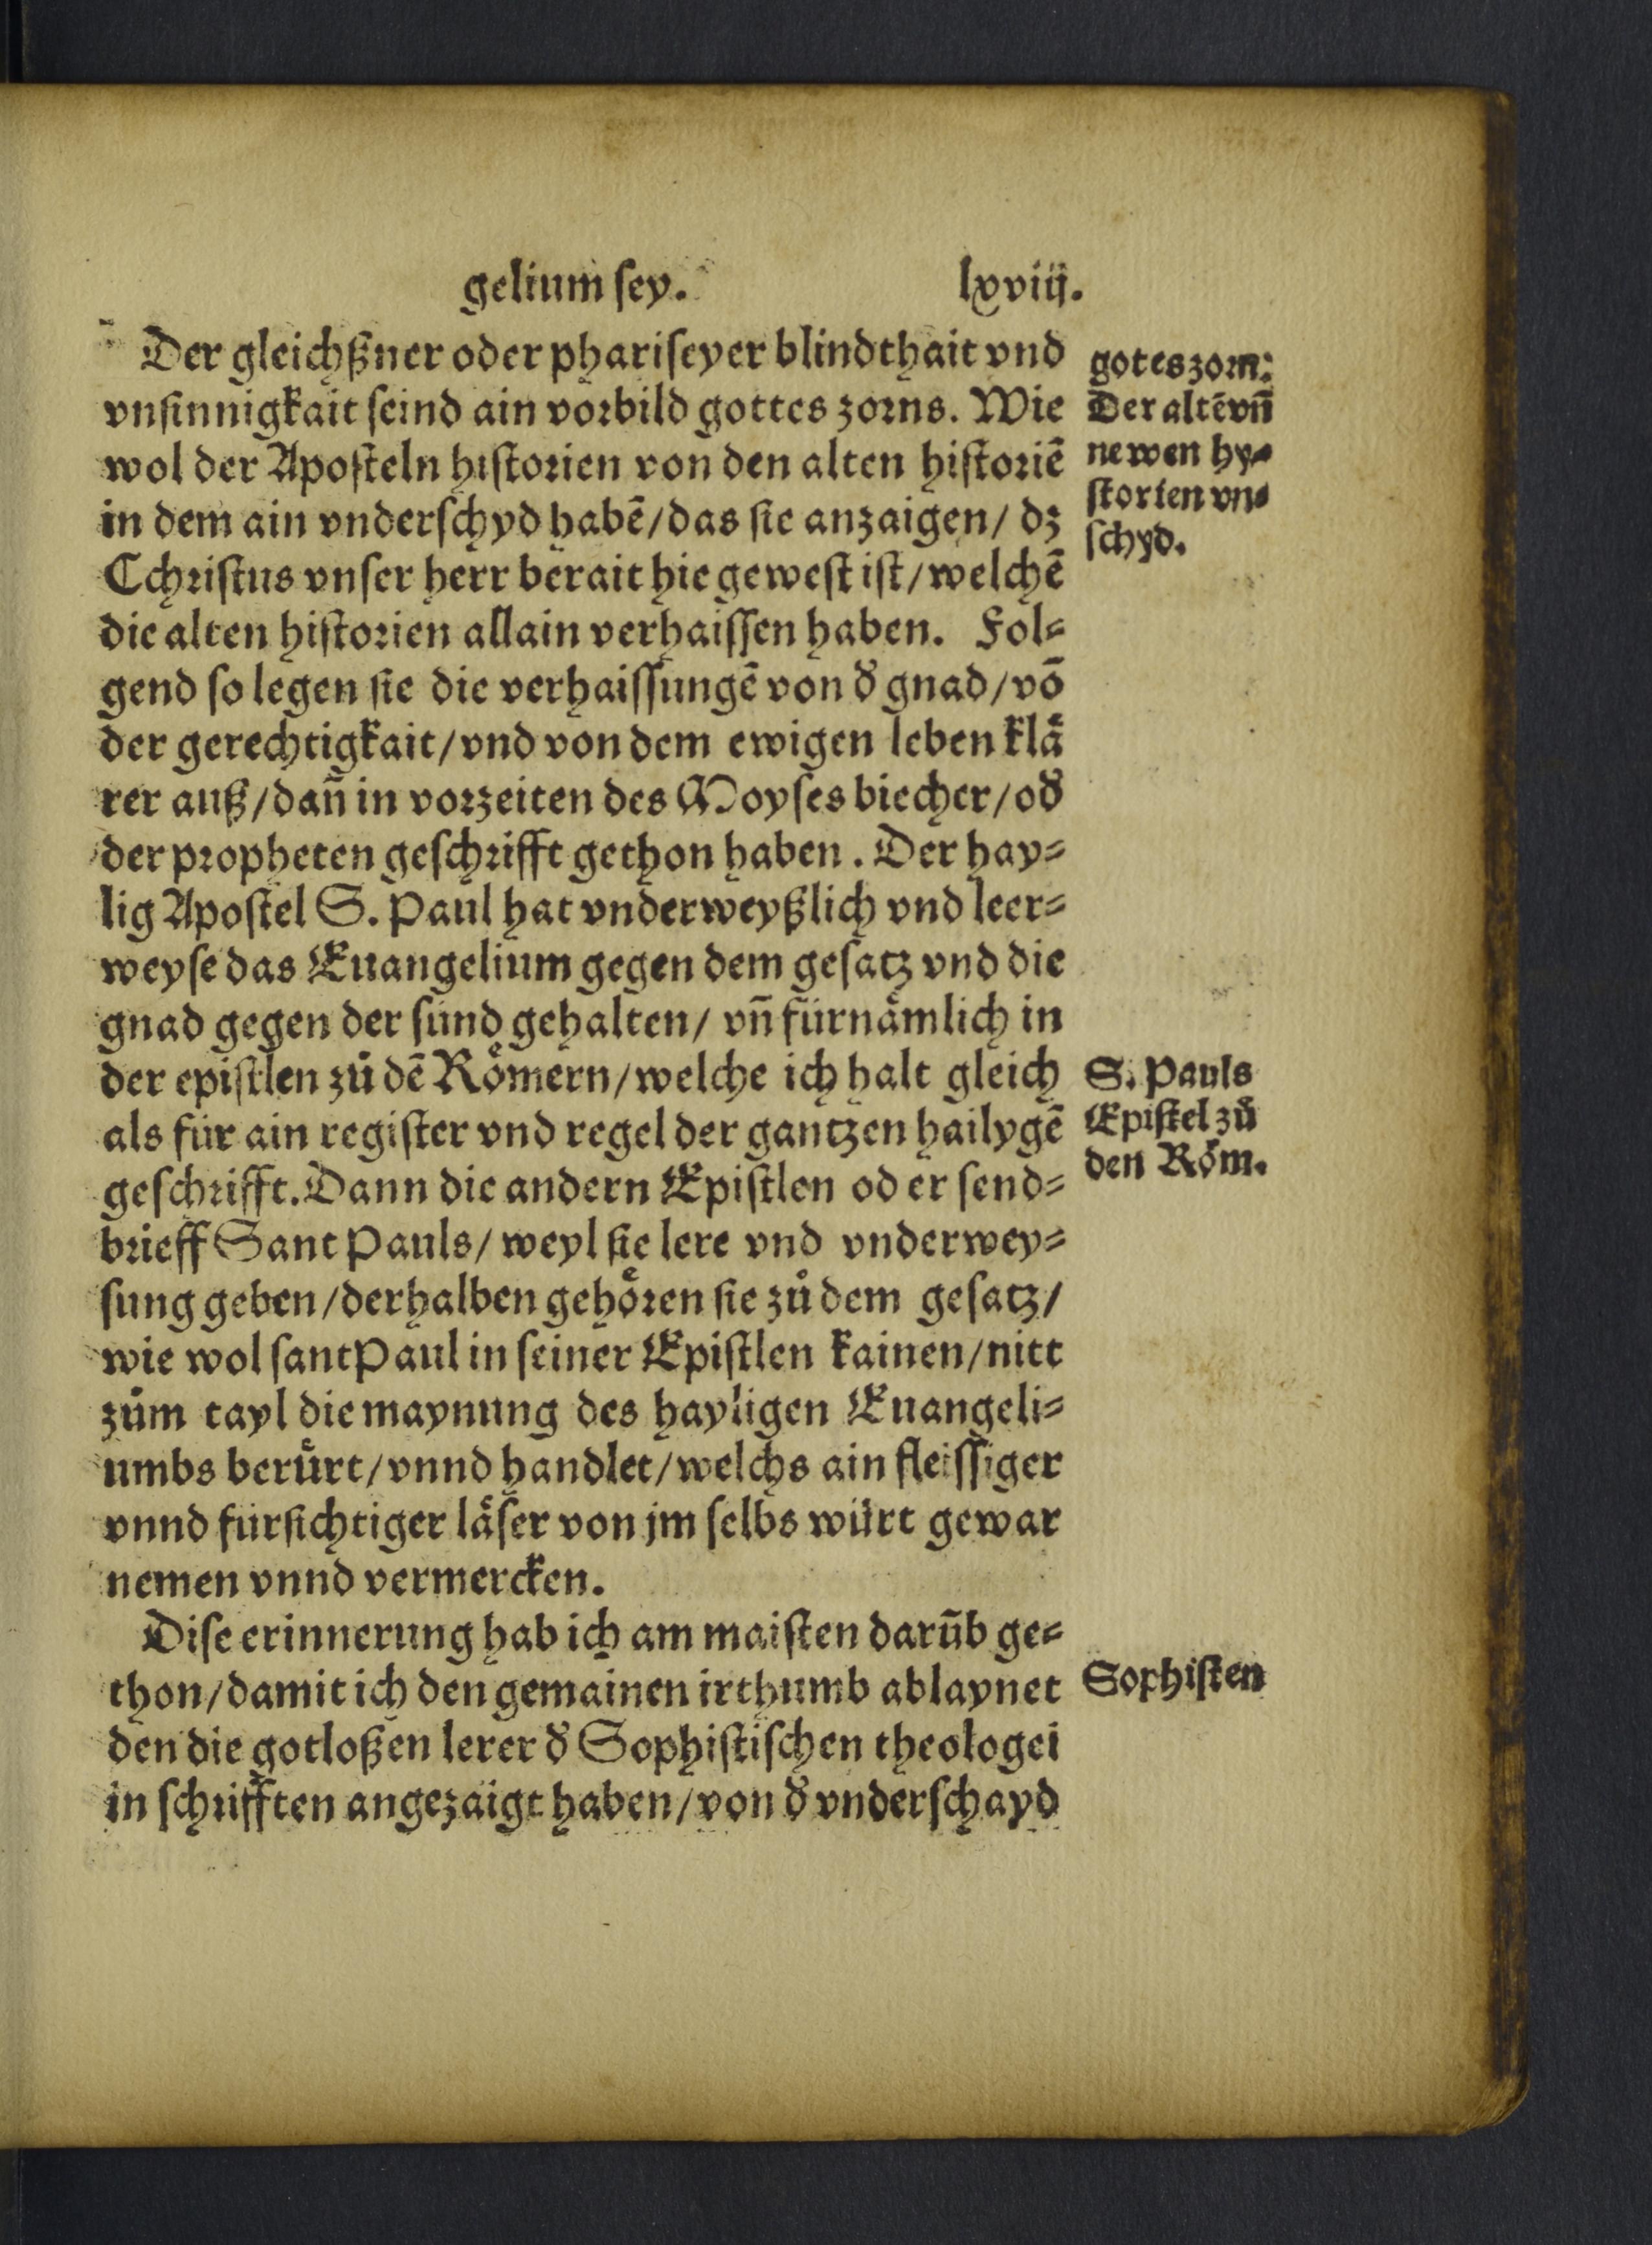 gelium ſey. lxviij.
Der gleichßner oder phariſeyer blindthait vnd
vnſinnigkait ſeind ain vorbild gottes zorns. Wie
wol der Apoſteln hiſtorien von den alten hiſtoriē
in dem ain vnderſchyd habē/das ſie anzaigen/ dz
Cchriſtus vnſer herr berait hie geweſt iſt/welchē
die alten hiſtorien allain verhaiſſen haben. Fol⸗
gend ſo legen ſie die verhaiſſungē von d̕ gnad/vō
der gerechtigkait/vnd von dem ewigen leben klaͤ
rer auß/dañ in vorzeiten des Moyſes biecher/od̕
der propheten geſchrifft gethon haben. Der hay⸗
lig Apoſtel S. Paul hat vnderweyßlich vnd leer⸗
weyſe das Euangelium gegen dem geſatz vnd die
gnad gegen der ſünd gehalten/ vñ fürnaͤmlich in
der epiſtlen zů dē Roͤmern/welche ich halt gleich
als für ain regiſter vnd regel der gantzen hailygē
geſchrifft. Dann die andern Epiſtlen od er ſend⸗
brieff Sant Pauls/ weyl ſie lere vnd vnderwey⸗
ſung geben/derhalben gehoͤren ſie zů dem geſatz/
wie wol ſant Paul in ſeiner Epiſtlen kainen/nitt
zům tayl die maynung des hayligen Euangeli⸗
umbs beruͤrt/vnnd handlet/welchs ain fleiſſiger
vnnd fürſichtiger laͤſer von jm ſelbs würt gewar
nemen vnnd vermercken.
Diſe erinnerung hab ich am maiſten darūb ge⸗
thon/damit ich den gemainen irthumb ablaynet
den die gotloßen lerer d̕ Sophiſtiſchen theologei
in ſchrifften angezaigt haben/von d̕ vnderſchayd
gotes zorn:
Der altē vñ
newen hy⸗
ſtorien vn⸗
ſchyd.
S. Pauls
Epiſtel zů
den Roͤm.
Sophiſten